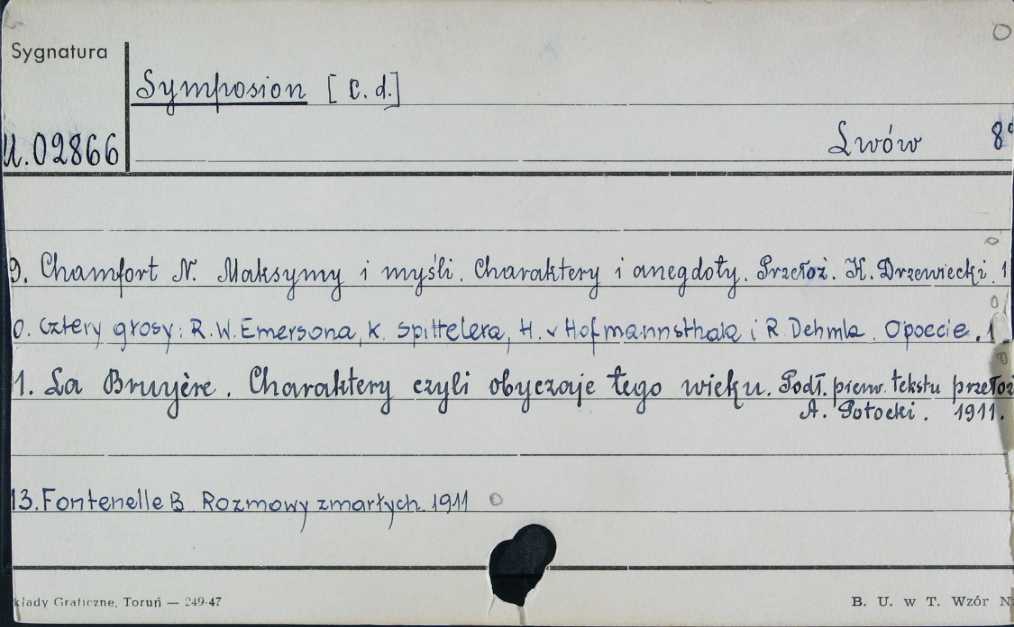 Sygnatura
Symposion [C.d.]
U.02866
Lwów 8°
9. Chamfort N. Maksymy i myśli. Charaktery i anegdoty. Przełoż. K. Drzewiecki. 1
0. Cztery głosy: R.W. Emersona, K. Spittelera, H. v Hofmannsthala i R. Dehmla. O poecie. 1
1. La Bruyère. Charaktery czyli obyczaje tego wieku. Podł. pierw. tekstu przełoż
A. Potocki. 1911.
13. Fontenelle B. Rozmowy zmarłych. 1911
kłady Graficzne, Toruń — 249-47
B. U. w T. Wzór N